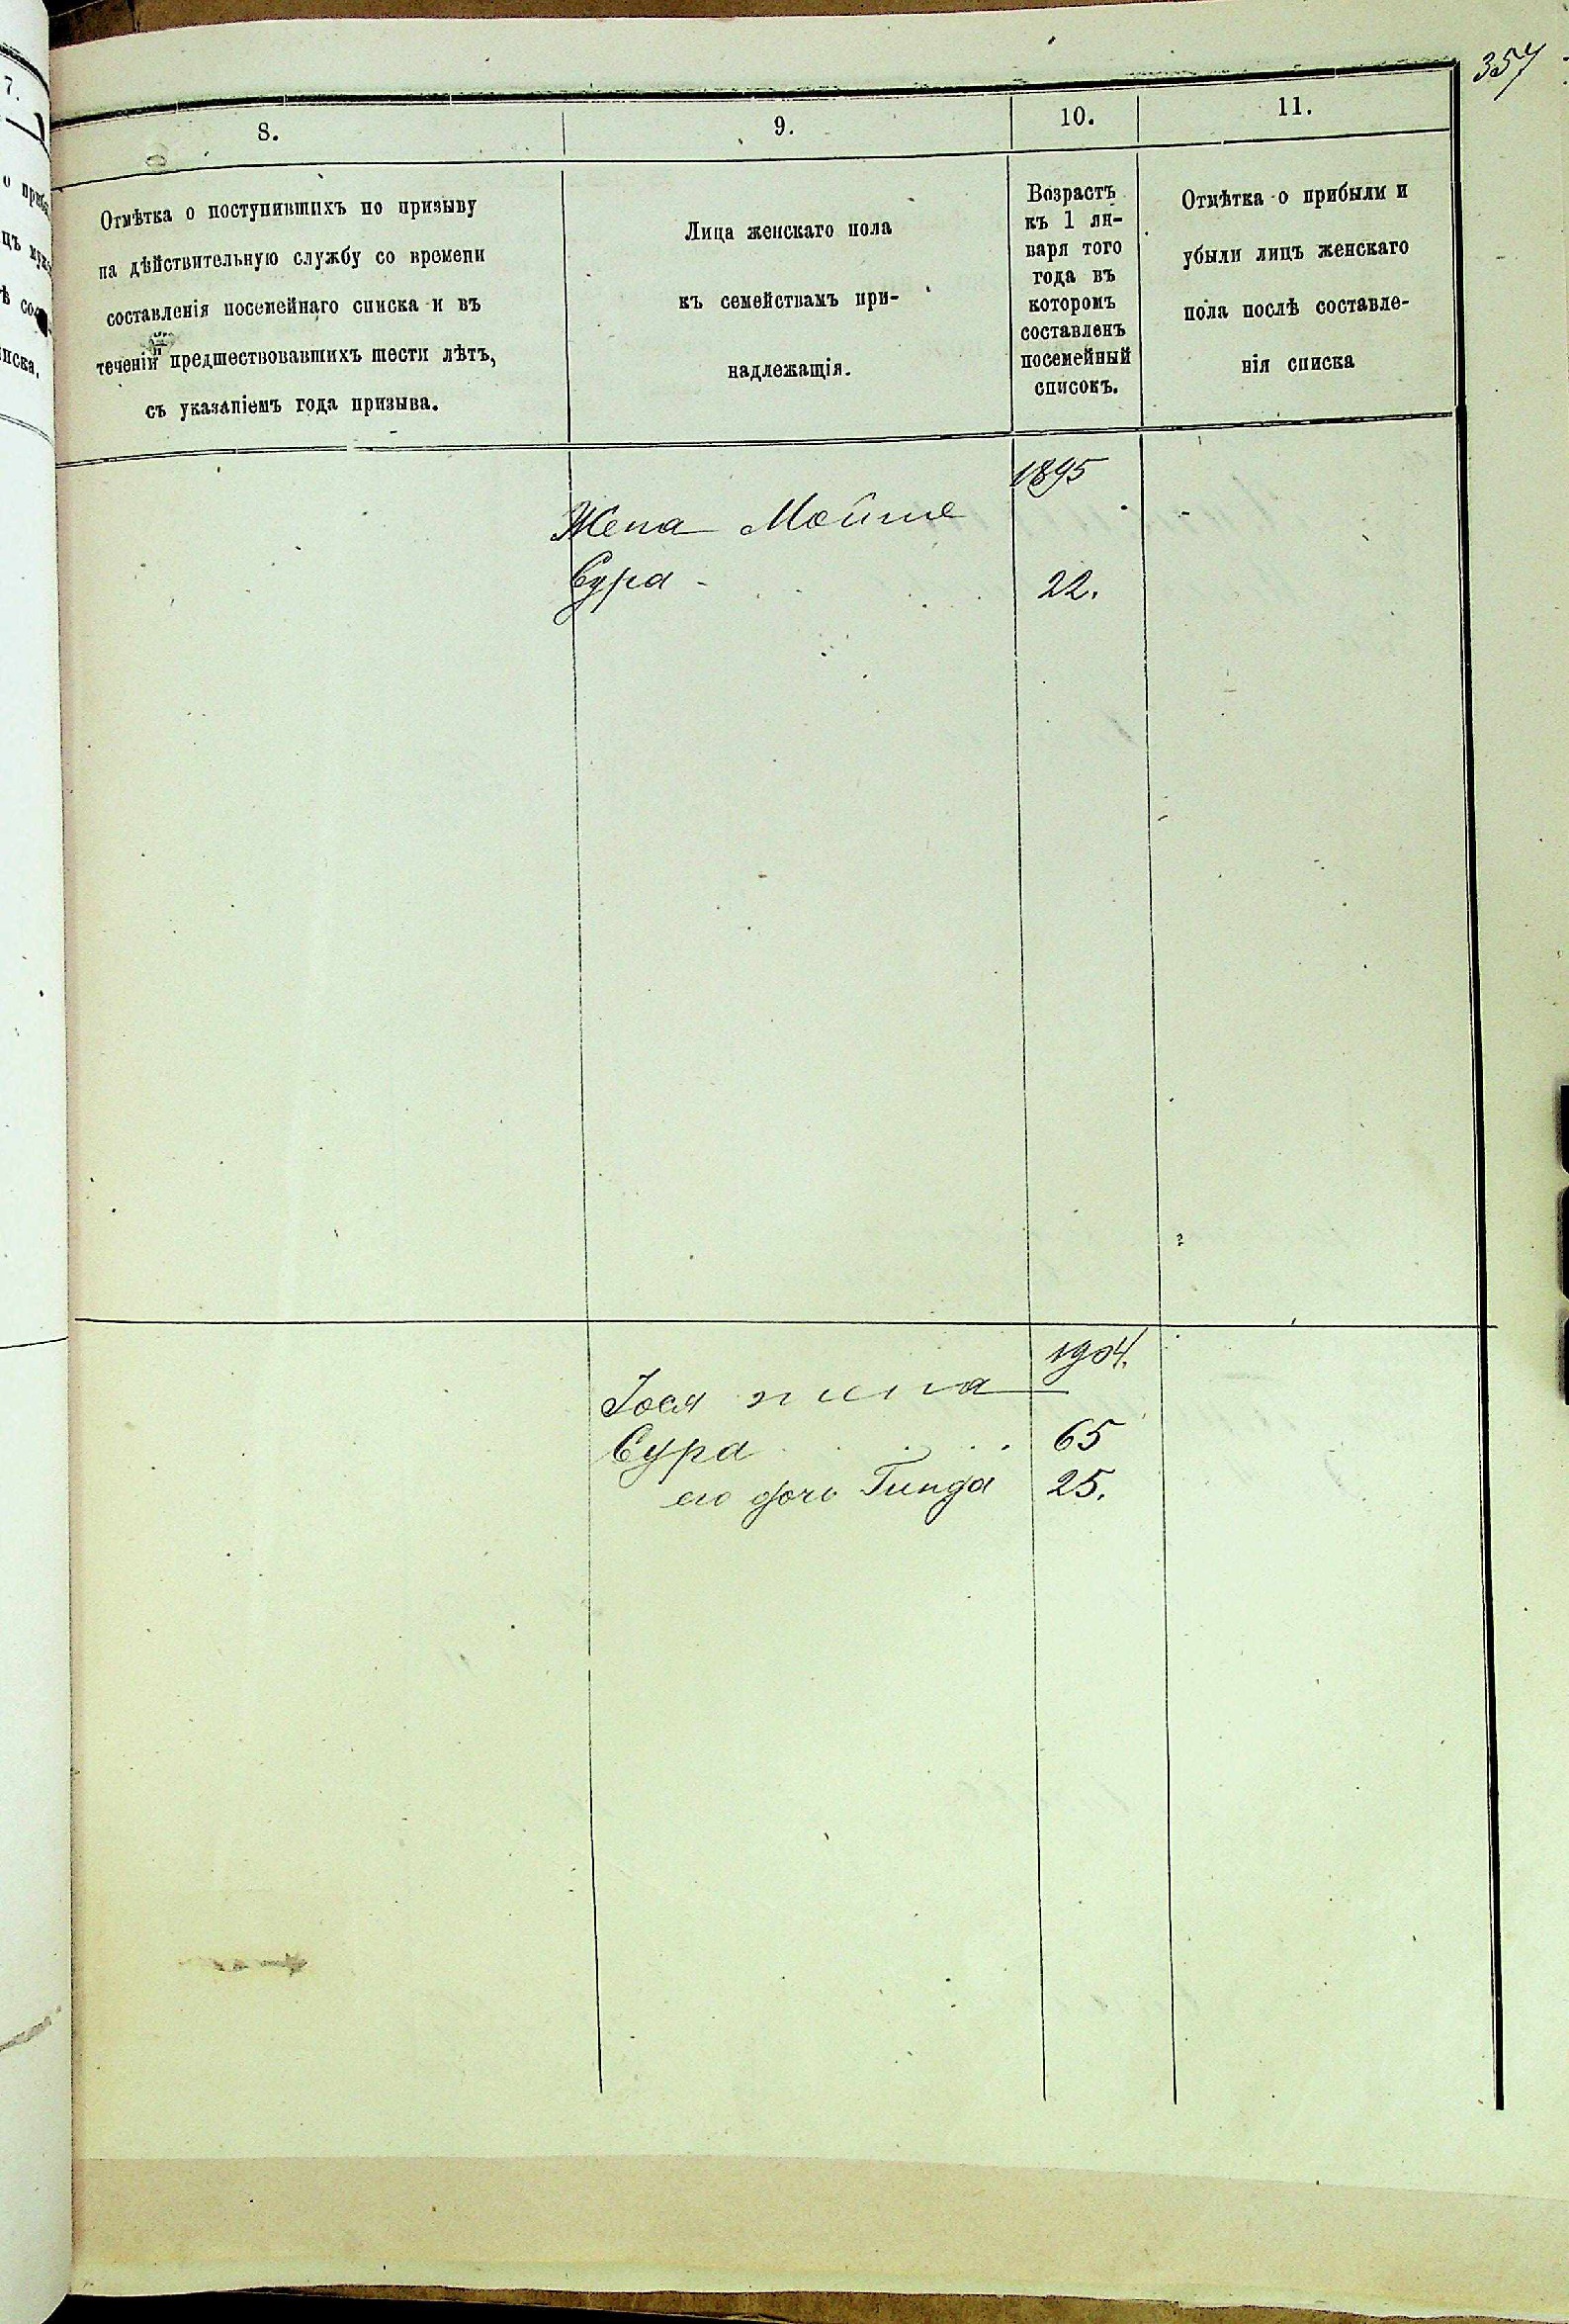 357
7.
8.
9.
10.
11.
Отмѣтка о поступившихъ по призыву
на дѣйствительную службу со времени
составленія посемейнаго списка и въ
теченіи предшествовавшихъ шести лѣтъ,
съ указаніемъ года призыва.
Лица женскаго пола
къ семействамъ при-
надлежащія.
Возрастъ
къ 1 ян-
варя того
года въ
которомъ
составленъ
посемейный
списокъ.
Отмѣтка о прибыли и
убыли лицъ женскаго
пола послѣ составле-
нія списка
1895
Жена Мойше
Сура 22.
1904.
Іося жена
Сура 65
его дочь Гинда 25.